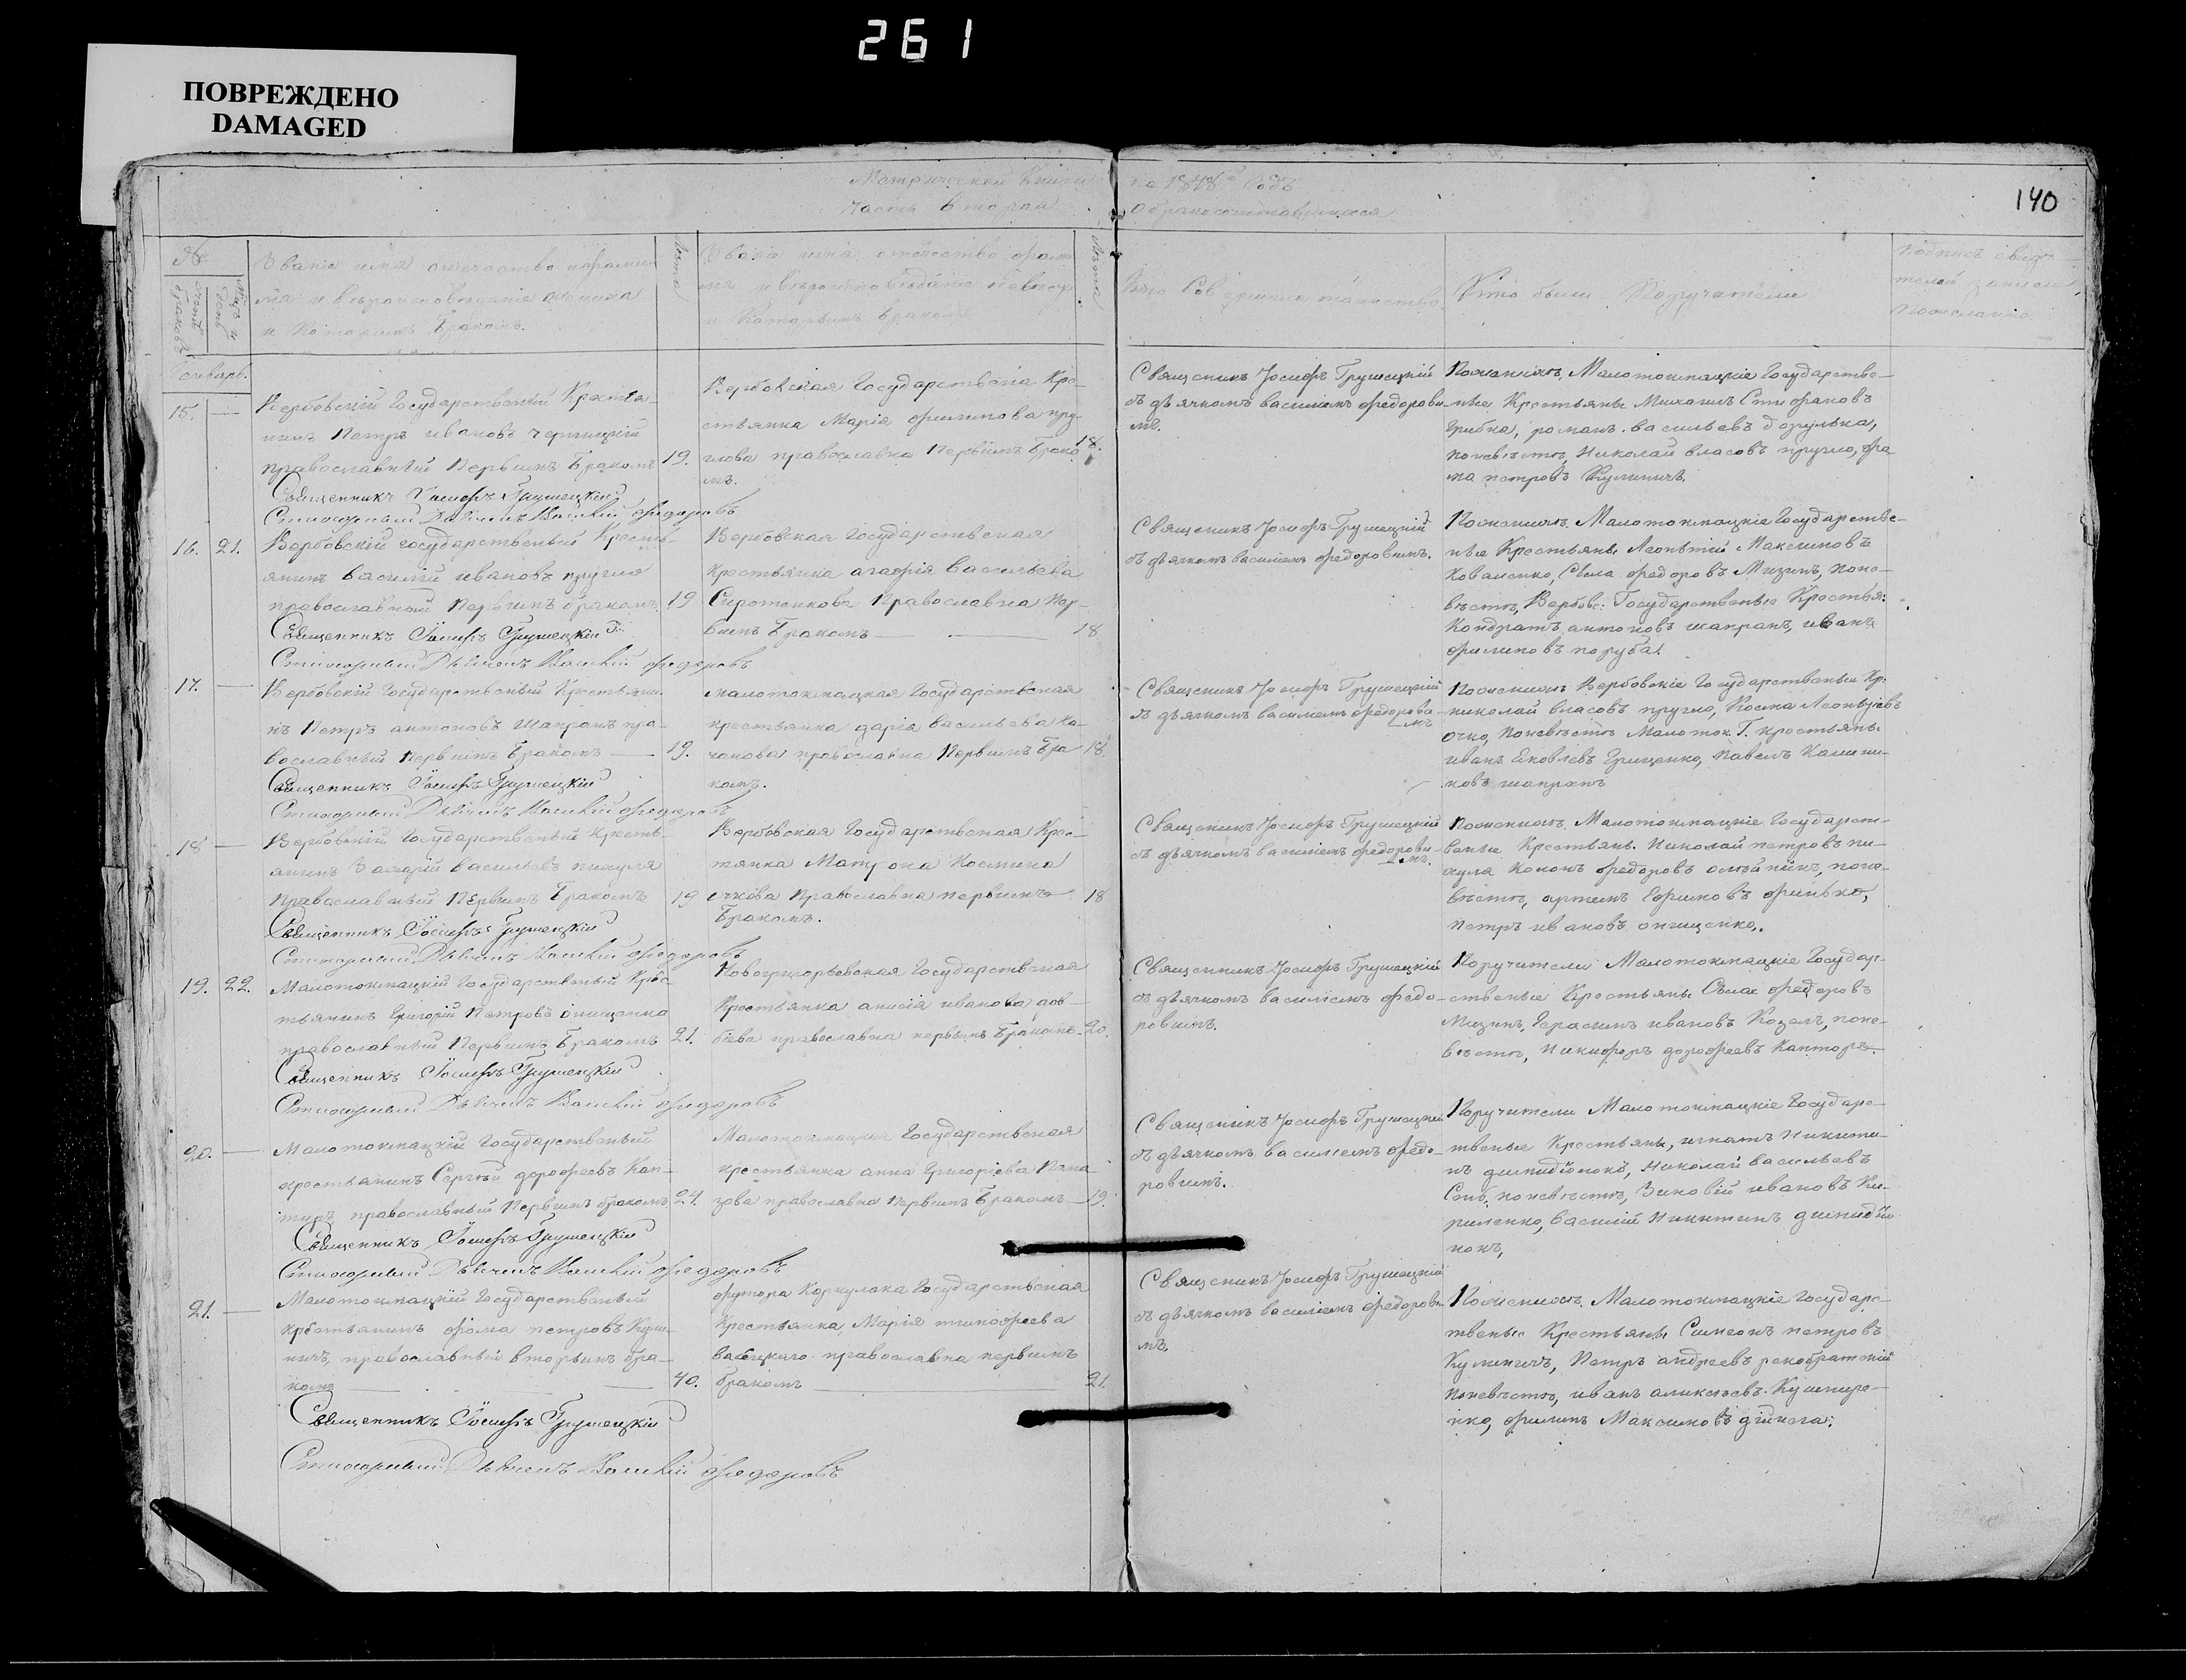 261
ПОВРЕЖДЕНО
DAMAGED
140
Метрической книги на 1848й Годъ
Часть вторая о бракосочитавшихся
№
Мѣсяцъ и день
счетъ браковъ
Званіе имя отечество и фамилія и вѣроисповѣданіе жениха
и Которымъ Бракомъ.
Лета
Званіе имя, отечество фамилія и вѣроисповѣданіе невесты
и Которымъ Бракомъ
Лѣта
Кто Совершалъ таинство
Кто были Поручители
Январь.
15. —
Вербовскій Государственый Крестья-
нинъ Петръ ивановъ
православный Первымъ Бракомъ 19.
Священникъ Іосифъ Грушецкій
Вербовская Государствена Кре-
стьянка Марія филипова кру-
глова православна Первымъ Брако 18.
мъ.
Священикъ Іосифъ Грушецкій
съ дьячкомъ василіемъ федоровы-
мъ.
Пожениху, Малотокмацкіе Государстве-
ные Крестьяны Михаилъ Стефановъ
Грибка, романъ васильевъ
поневѣсте, Николай власовъ кругло, фо-
ма петровъ Кулиничъ.
Священникъ Іосифъ Грушецкій
Стихарный Дьячекъ Василій федоровъ
16. 21.
Вербовскій государственый Кресть-
янинъ василій ивановъ кругло
православный Первымъ бракомъ 19
Священникъ Іосифъ Грушецкій
Стихарный Дьячекъ Василій федоровъ
Вербовская Государственая
Крестьянка агафія васильева
Сиротенкова Православна Пер-
вымъ Бракомъ — 18
Священикъ Іосифъ Грушецкій
съ дьячкомъ василіемъ федоровымъ.
Пожениху. Малотокмацкіе Государстве-
ные Крестьяны Леонтій Максимовъ
Коваленко, Сѣла федоровъ Мизинъ, поне-
вѣсте, Вербовс: Государственые Крестья:
Кондратъ антоновъ шапранъ, иванъ
филиповъ поруба.
17. —
Вербовскій Государственый Крестьяни-
нъ Петръ антоновъ Шапранъ пра-
вославный Первымъ Бракомъ — 19.
Священникъ Іосифъ Грушецкій
Стихарный Дьячекъ Василій федоровъ
малотокмацкая Государственая
крестьянка дарія васильева Ка-
чанова православна Первымъ Бра 18
комъ.
Священикъ Іосифъ Грушецкій
съ дьячкомъ василіемъ федоровы-
мъ
Пожениху Вербовскіе Государственые Кр:
николай власовъ кругло, Косма Леонтіевъ
очко, Поневѣсте Малоток. Г. крестьяны
иванъ Яковлевъ Грищенко, Павелъ Калини-
ковъ шапранъ
18 —
Вербовскій Государственый Кресть-
янинъ Захарій васильевъ пикуля
Православный Первымъ Бракомъ 19
Священникъ Іосифъ Грушецкій
Стихарный Дьячекъ Василій федоровъ
Вербовская Государственая Крес-
тянка Матрона Космина
очкова Православна первымъ 18
Бракомъ.
Священикъ Іосифъ Грушецкій
съ дьячкомъ василіемъ федоровы-
мъ.
Пожениху. Малотокмацкіе Государст-
веные Крестьяны. Николай петровъ пи-
кула Кононъ федоровъ поне-
вѣсте, артемъ Ефимовъ финько,
петръ ивановъ онищенко.
19. 22.
Малотокмацкій Государственый Крес-
тьянинъ Григорій Петровъ онищенко
православный Первымъ Бракомъ 21.
Священникъ Іосифъ Грушецкій
Стихарный Дьячекъ Василій федоровъ
Новогригорьевская Государственая
Крестьянка анисія иванова дов-
бієва православна первымъ Бракомъ 20.
Священникъ Іосифъ Грушецкій
съ дьячкомъ василіемъ федо-
ровымъ.
Поручители Малотокмацкіе Государ-
ственые Крестьяны Сѣла федоровъ
Мизинъ, Герасимъ ивановъ Козелъ, поне-
вѣсте, Никифоръ дорофеевъ Канторъ.
20. —
Малотокмацкій Государственый
крестьянинъ Сергѣй дорофеевъ Кан-
туръ православный Первымъ бракомъ 24.
Священникъ Іосифъ Грушецкій
Стихарный Дьячекъ Василій федоровъ
Малотокмацкая Государственая
крестьянка анна Григоріева
православна Первымъ Бракомъ — 19.
Священикъ Іосифъ Грушецкій
съ дьячкомъ василіемъ федо-
ровымъ.
Поручители Малотокмацкіе Государс-
твеные Крестьяны, игнатъ Никити-
нъ Николай васильевъ
поневѣсте, Зиновій ивановъ Ки-
риленко, василій Никитинъ
21. —
Малотокмацкій Государственый
крестьянинъ фома петровъ Кули-
ничъ, православный вторымъ бра-
комъ — 40.
Священникъ Іосифъ Грушецкій
Стихарный Дьячекъ Василій федоровъ
футора Коркулака Государственая
Крестьянка, Марія тимофеева
православна первымъ
бракомъ — 21.
Священикъ Іосифъ Грушецкій
съ дьячкомъ василіемъ федоровы-
мъ.
Пожениху. Малотокмацкіе Государс-
твеные Крестьяны Симеонъ петровъ
Кулиничъ, Петръ андреевъ
поневѣсте, иванъ алиексѣевъ Кушнире-
нко, филипъ Максимовъ